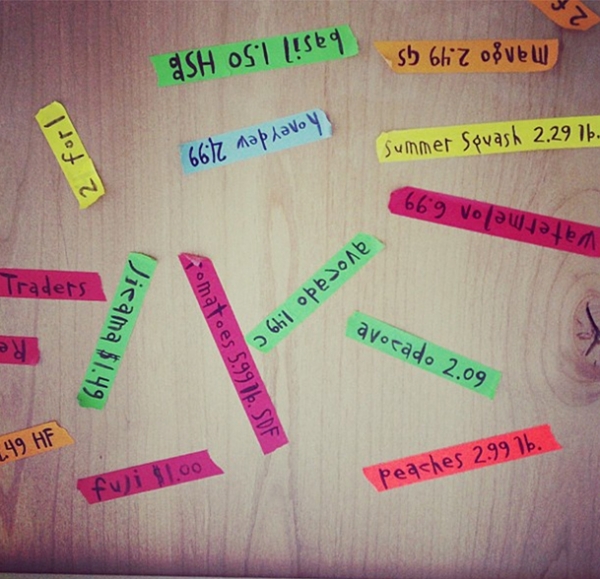 2 f
basil 1.50 HSB
Mango 2.49 GS
2 for 1
honeydew
Summer Squash 2.29 lb.
watermelon 6.99
Traders
Jicama $1.49
Tomatoes 5.99 lb. SDF
avocado 1.49 C
avocado 2.09
Re
.49 HF
fuji $1.00
peaches 2.99 lb.